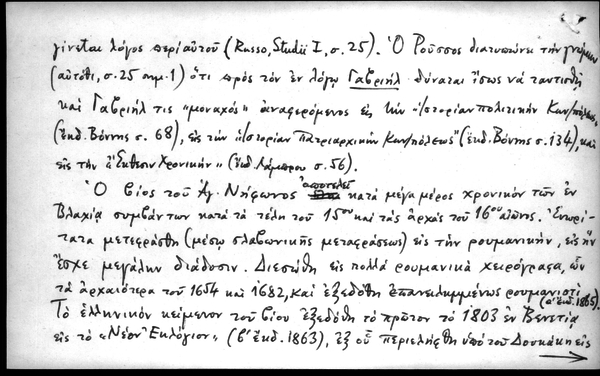 γίνεται λόγος περὶ αὐτοῦ (Russo, Studii I, σ. 25). Ὁ Ροῦσσος διατυπώνει τὴν γνώμην
(αὐτόθι, σ. 25 σημ. 1) ὅτι πρὸς τὸν ἐν λόγῳ Γαβριὴλ δύναται ἴσως νὰ ταυτισθῇ
καὶ Γαβριήλ τις "μοναχός" ἀναφερόμενος εἰς τὴν "Ἱστορίαν πολιτικὴν Κων/πόλεως"
(ἔκδ. Βόννης σ. 68), εἰς τὴν "Ἱστορίαν Πατριαρχικὴν Κων/πόλεως" (ἔκδ. Βόννης σ. 134), καὶ
εἰς τὴν "Ἔκθεσιν Χρονικήν" (ἔκδ. Λάμπρου σ. 56).
Ὁ βίος τοῦ Ἁγ. Νήφωνος ἀποτελεῖ κατὰ μέγα μέρος χρονικὸν τῶν ἐν
Βλαχίᾳ συμβάντων κατὰ τὰ τέλη τοῦ 15ου καὶ τὰς ἀρχὰς τοῦ 16ου αἰῶνος. Ἐνωρί-
τατα μετεφράσθη (μέσῳ σλαβωνικῆς μεταφράσεως) εἰς τὴν ρουμανικήν, εἰς ἣν
ἔσχε μεγάλην διάδοσιν. Διεσώθη εἰς πολλὰ ρουμανικὰ χειρόγραφα, ὧν
τὰ ἀρχαιότερα τοῦ 1654 καὶ 1682, καὶ ἐξεδόθη ἐπανειλημμένως ρουμανιστὶ (αʹ ἔκδ. 1865).
Τὸ ἑλληνικὸν κείμενον τοῦ βίου ἐξεδόθη τὸ πρῶτον τὸ 1803 ἐν Βενετίᾳ
εἰς τὸ "Νέον Ἐκλόγιον" (βʹ ἔκδ. 1863), ἐξ οὗ περιελήφθη ὑπὸ τοῦ Δουκάκη εἰς